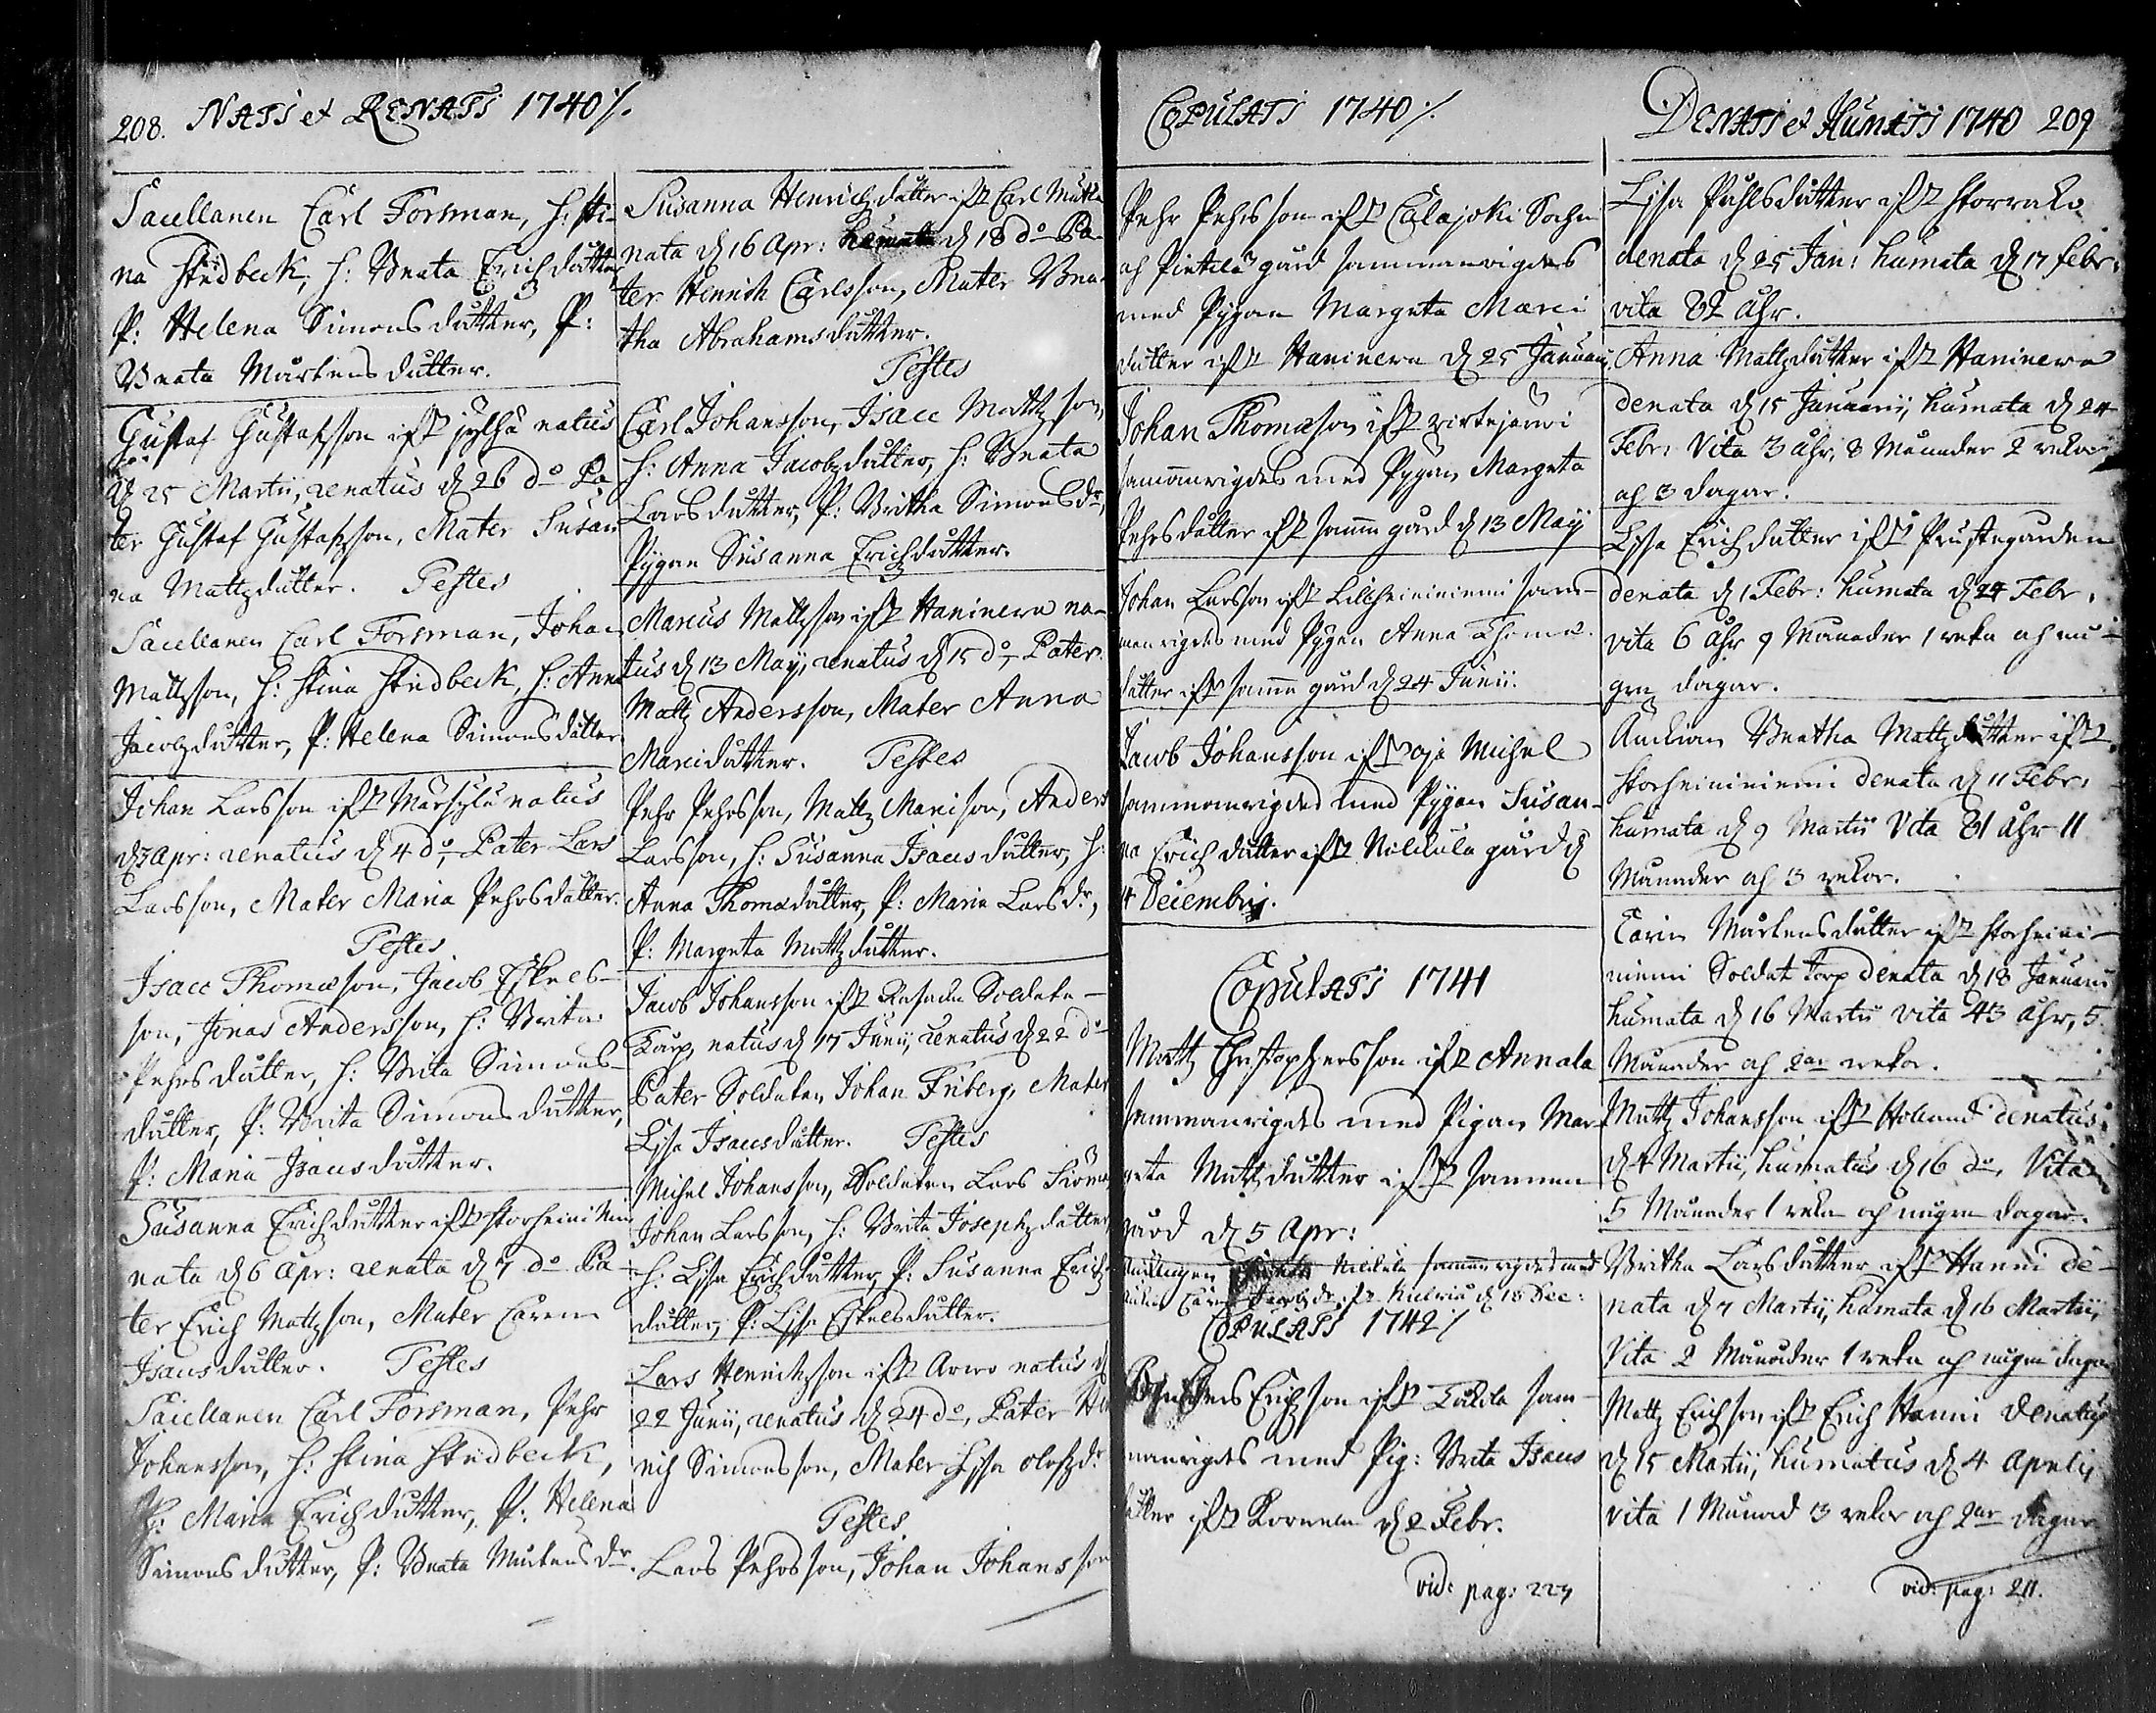 208. NATI et RENATI 1740 %.
Sacellanen Carl Forsman, h: Sti-
na Studbeck, h: Beata Erichdotter
P: Helena Simonsdotter, P:
Beata Mårtensdotter.
Gustaf Gustafsson ifr Jylhä natus
d 25 Martii, renatus d 26 do Pa-
ter Gustaf Gustafsson, Mater Susan
na Mattzdotter. Testes
Sacellanen Carl Forsman, Johan
Mattzson, h: Stina Studbeck, h: Anna
Jacobzdotter, P: Helena Simonsdotter
Johan Larsson ifr Märsylä natus
d 3 Apr: renatus d 4 do, Pater Lars
Larsson, Mater Maria Pehrsdotter.
Testes
Isacc Thomæson, Jacob Eskels-
son, Jonas Andersson, h: Brita
Pehrsdotter, h: Brita Simons-
dotter, P: Brita Simonsdotter,
P: Maria Isacsdotter.
Susanna Erichdotter ifr Storheiniemi
nata d 6 Apr: renata d 7 do Pa-
ter Erich Mattzson, Mater Carin
Isacsdotter. Testes
Sacellanen Carl Forsman, Pehr
Johansson, h: Stina Studbeck,
h: Maria Erichdotter, P: Helena
Simonsdotter, P: Beata Mårtensdr.
Susanna Henrichdotter ifr Carl Mutka
nata d 16 Apr: d 18 do Pa-
ter Henrich Carlsson, Mater Bea-
tha Abrahamsdotter.
Testes
Carl Johansson, Isacc Mattzson,
h: Anna Jacobzdotter, h: Beata
Larsdotter, P: Britha Simonsdr,
Pygan Susanna Erichdotter.
Marcus Mattzson ifr Haninewa na-
tus d 13 Maij, renatus d 15 do, Pater
Mattz Andersson, Mater Anna
Marcidotter. Testes
Pehr Pehrsson, Mattz Marcison, Anders
Larsson, h: Susanna Isacsdotter, h:
Anna Thomædotter, P: Maria Larsdr,
P: Margeta Mattzdotter.
Jacob Johansson ifr Soldate-
Torp, natus d 17 Junii, renatus d 22 do
Pater Soldaten Johan Friberg, Mater
Lisa Isacsdotter. Testes
Michel Johansson, Soldaten Lars
Johan Larsson, h: Brita Josephzdotter
h: Lisa Erichdotter, P: Susanna Erich-
dotter, P: Lisa Eskelsdotter.
Lars Henrichsson ifr Arwo natus d
22 Junii, renatus d 24 do, Pater Hen
rich Simonsson, Mater Lisa Olofzdr
Testes
Lars Pehrsson, Johan Johansson
COPULATI 1740 %.
Pehr Pehrsson ifr Calajoki Sochn
och Pietilä gård sammanvigdes
med Pygan Margeta Marci
dotter ifr Haninewa d 25 Januarii
Johan Thomæson ifr Wirtejärwi
samanvigdes med Pygan Margeta
Pehrsdotter ifr samma gård d 13 Maij
Johan Larsson ifr Lillheiniemi sam-
manvigdes med Pygan Anna Thomæ-
dotter ifr samma gård d 24 Junii.
Jacob Johansson ifr Oja Michel
sammanvigdes med Pygan Susan-
na Erichdotter ifr Niskula gård d
4 Decembris.
COPULATI 1741
Mattz Christophersson ifr Annala
sammanvigdes med Pigan Mar-
geta Mattzdotter ifr samma
gård d 5 Apr:
sammanvigdes med
d 18 Dec:
COPULATI 1742 %
Erichson ifr sam-
manvigdes med Pig: Brita Isacs
dotter ifr d 2 Febr.
vid: pag: 227
DENATI et HUMATI 1740 209
Lisa Påhlsdotter ifr Storrako
denata d 25 Jan: humata d 17 febr:
vita 82 åhr.
Anna Mattzdotter ifr Haninewa
denata d 15 Januarii, humata d 24
Febr: Vita 3 åhr, 8 Månader 2 wekor
och 3 dagar.
Lisa Erichdotter ifr Prästegården
denata d 1 Febr: humata d 24 Febr,
vita 6 åhr 9 Månader 1 weka och nå-
gra dagar.
Änckian Beatha Mattzdotter ifr
Storheiniemi denata d 11 Febr:
humata d 9 Martii Vita 81 åhr 11
Månader och 3 wekor.
Carin Mårtensdotter ifr Storheini-
niemi Soldat torp denata d 18 Januarii
humata d 16 Martii vita 43 åhr, 5
Månader och 2ar wekor.
Mattz Johansson ifr denatus
d 4 Martii, humatus d 16 do, Vita
5 Månader 1 weka och några dagar.
Britha Larsdotter ifr Hanni de-
nata d 7 Martii, humata d 16 Martii,
Vita 2 Månader 1 weka och några dagar
Mattz Erichson ifr Erich Hanni denatus
d 15 Martii, humatus d 4 Aprilis
vita 1 Månad 3 wekor och 2ar dagar
vid: pag: 211.